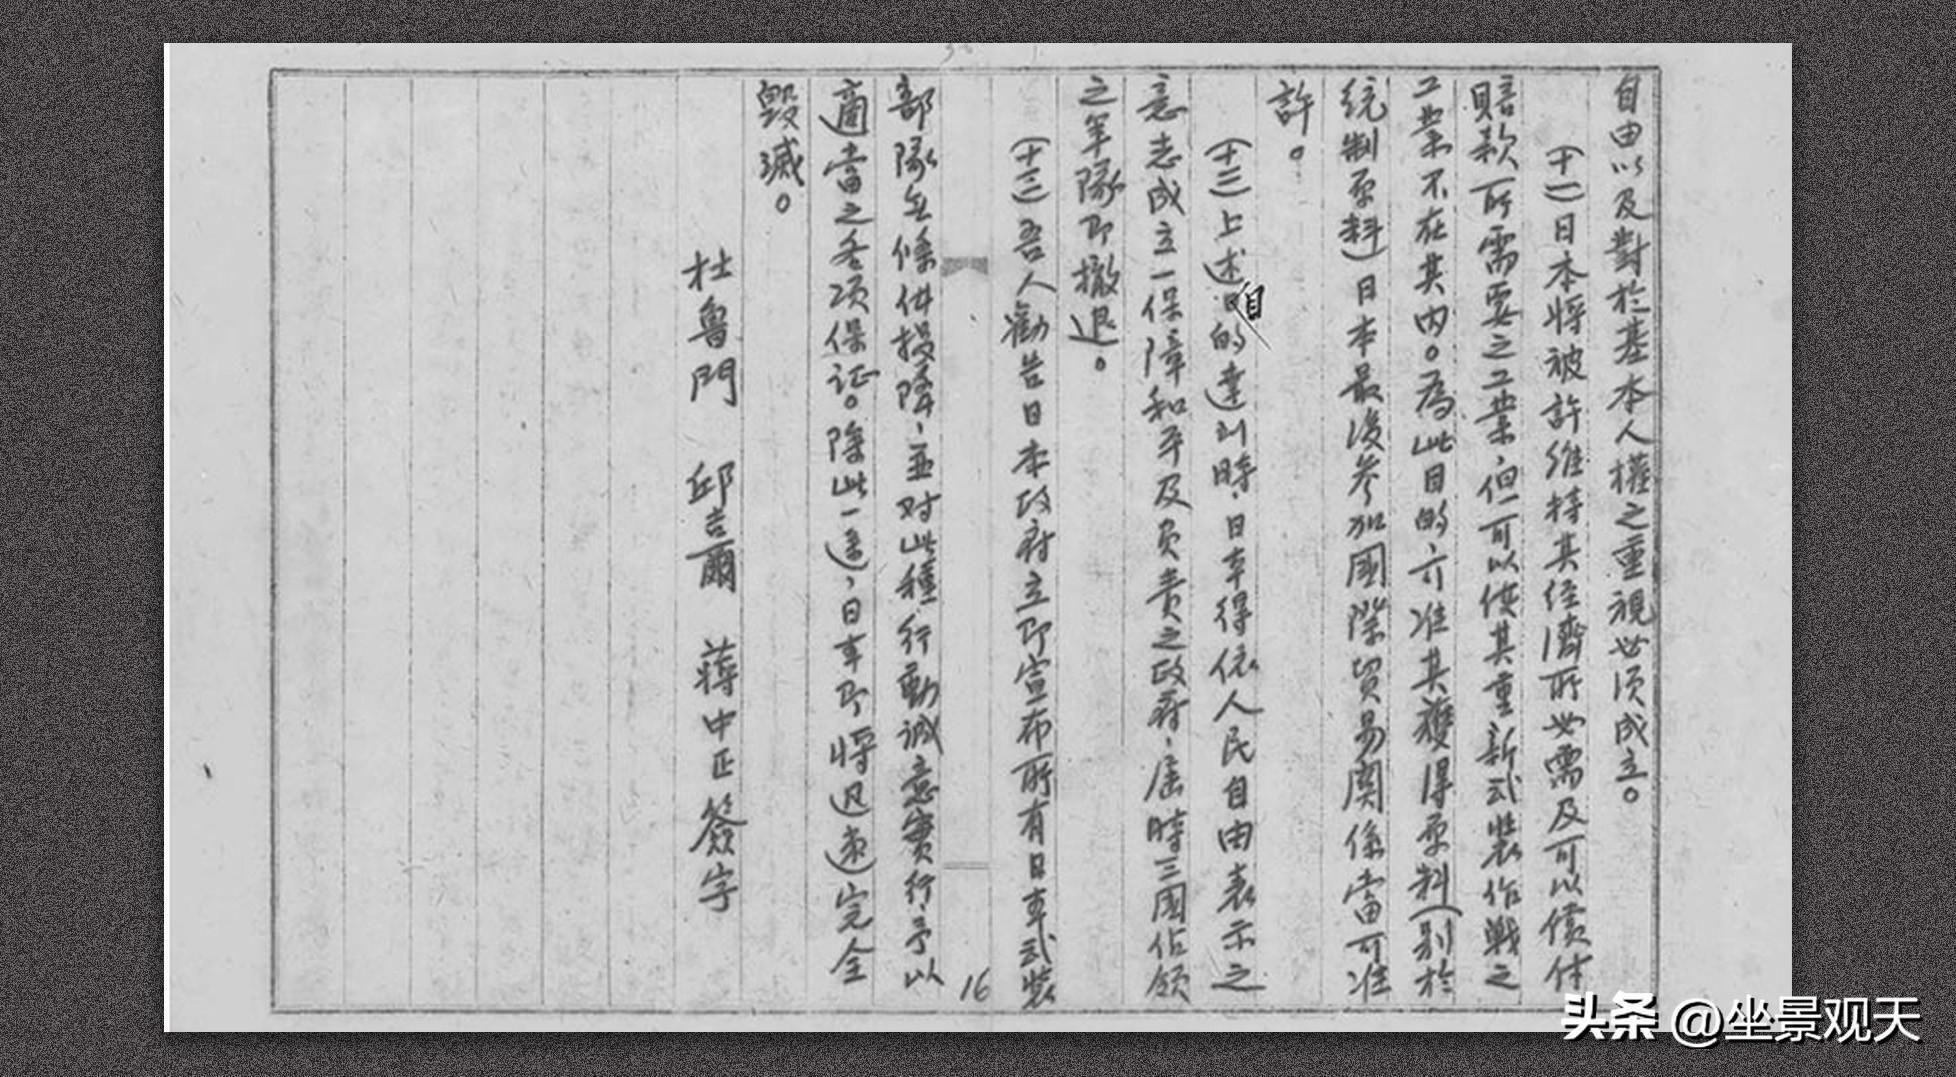 自由以及對於基本人權之重視必須成立。
(十一)日本將被許維持其经濟所必需及可以償付
賠款所需要之工業，但可以供其重新武裝作戰之
工業不在其內。為此目的，可准其獲得原料(别於
統制原料)日本最後參加國際貿易関係當可准
許。
(十二)上述目的達到時，日本得依人民自由表示之
意志成立一保障和平及負責之政府，屆時三國佔領
之軍隊即撤退。
(十三)吾人勸告日本政府立即宣布所有日本武裝
16
部隊無條件投降，並对此種行動誠意實行予以
適當之各項保证。除此一途，日本即將迅速完全
毁滅。
杜魯門 邱吉爾 蔣中正簽字
头条 @坐景观天